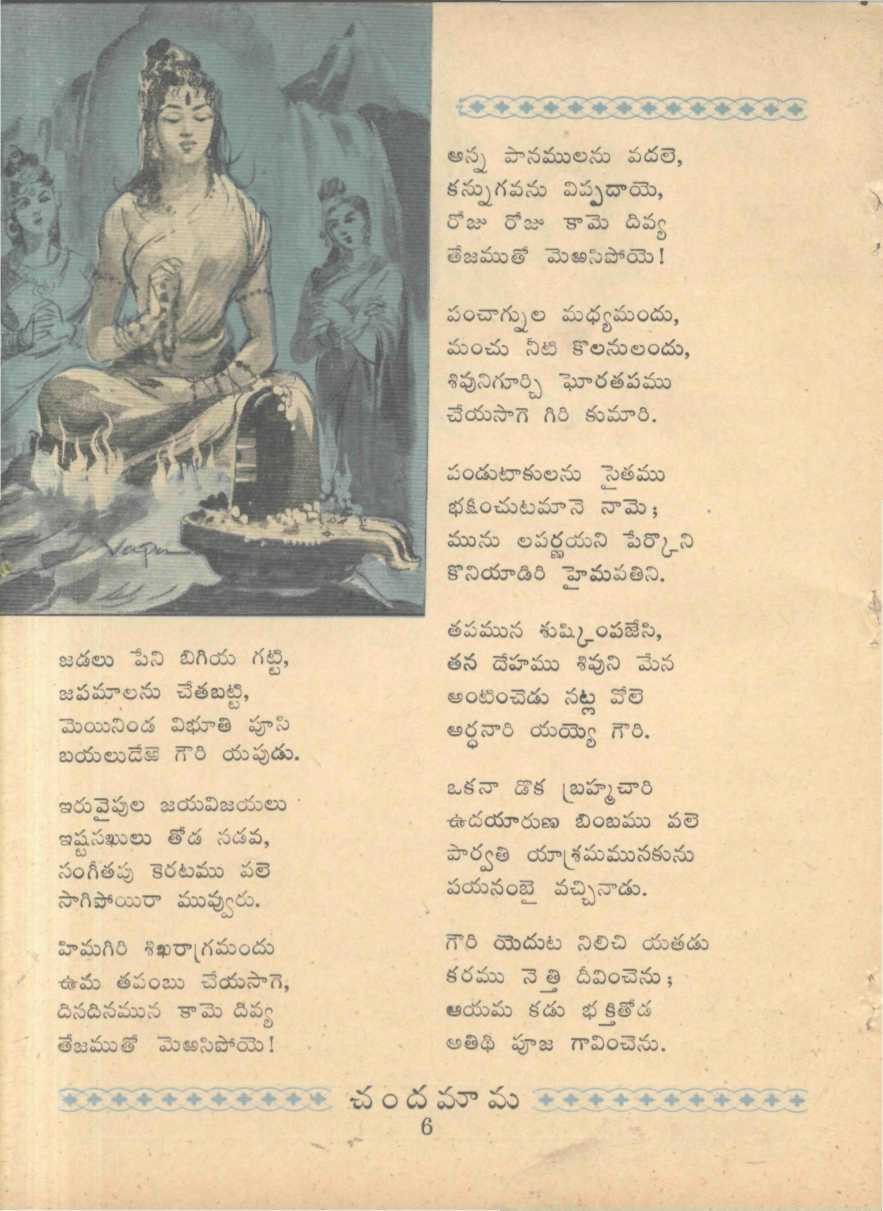 జడలు పేని బిగియ గట్టి,
జపమాలను చేతబట్టి,
మెయినిండ విభూతి పూసి
బయలుదేఱె గౌరి యపుడు.
ఇరువైపుల జయవిజయలు
ఇష్టసఖులు తోడ నడవ,
సంగీతపు కెరటము వలె
సాగిపోయిరా మువ్వురు.
హిమగిరి శిఖరాగ్రమందు
ఉమ తపంబు చేయసాగె,
దినదినమున కామె దివ్య
తేజముతో మెఱసిపోయె!
అన్న పానములను వదలె,
కన్నుగవను విప్పదాయె,
రోజు రోజు కామె దివ్య
తేజముతో మెఱసిపోయె!
పంచాగ్నుల మధ్యమందు,
మంచు నీటి కొలనులందు,
శివునిగూర్చి ఘోరతపము
చేయసాగె గిరి కుమారి.
పండుటాకులను సైతము
భక్షించుటమానె నామె;
మును లపర్ణయని పేర్కొని
కొనియాడిరి హైమవతిని.
తపమున శుష్కింపజేసి,
తన దేహము శివుని మేన
అంటించెడు నట్ల వోలె
అర్ధనారి యయ్యె గౌరి.
ఒకనా డొక బ్రహ్మచారి
ఉదయారుణ బింబము వలె
పార్వతి యాశ్రమమునకును
పయనంబై వచ్చినాడు.
గౌరి యెదుట నిలిచి యతడు
కరము నెత్తి దీవించెను;
ఆయమ కడు భక్తితోడ
అతిథి పూజ గావించెను.
చందమామ
6